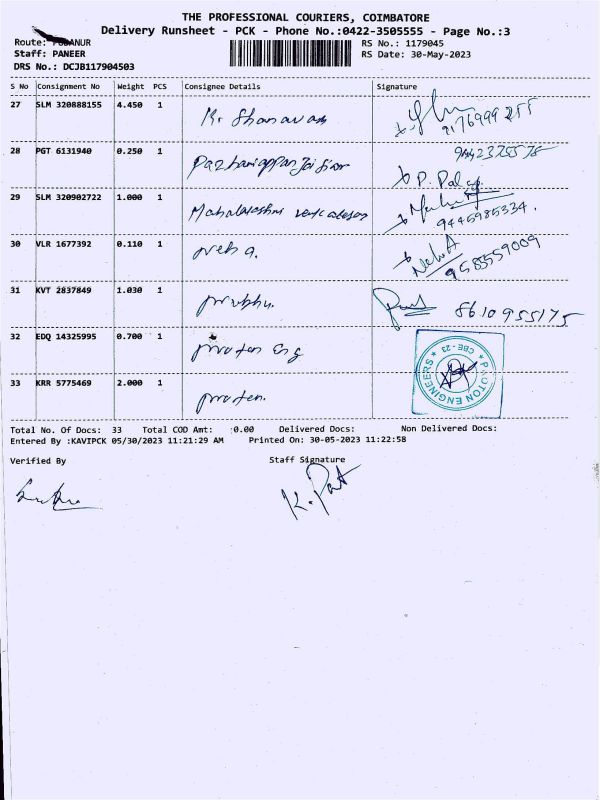 THE PROFESSIONAL COURIERS, COIMBATORE
Delivery Runsheet - PCK - Phone No.:0422-3505555 - Page No.:3
Route: PODANUR
RS No.: 1179045
Staff: PANEER
RS Date: 30-May-2023
DRS No.: DCJB117904503
S No Consignment No Weight PCS Consignee Details Signature
27 SLM 320888155 4.450 1 Kr Shanavam
28 PGT 6131940 0.250 1
P. Pal
29 SLM 320902722 1.000 1 Mahalakshmi venkatesan
9445985334.
30 VLR 1677392 0.110 1 Neha. Neha
9585559009
31 KVT 2837849 1.030 1 prabhu. 8610955175
32 EDQ 14325995 0.700 1 proton Eng
33 KRR 5775469 2.000 1 proton.
PROTON ENGINEERS * CBE - 23 *
Total No. Of Docs: 33 Total COD Amt: :0.00 Delivered Docs: Non Delivered Docs:
Entered By :KAVIPCK 05/30/2023 11:21:29 AM Printed On: 30-05-2023 11:22:58
Verified By Staff Signature